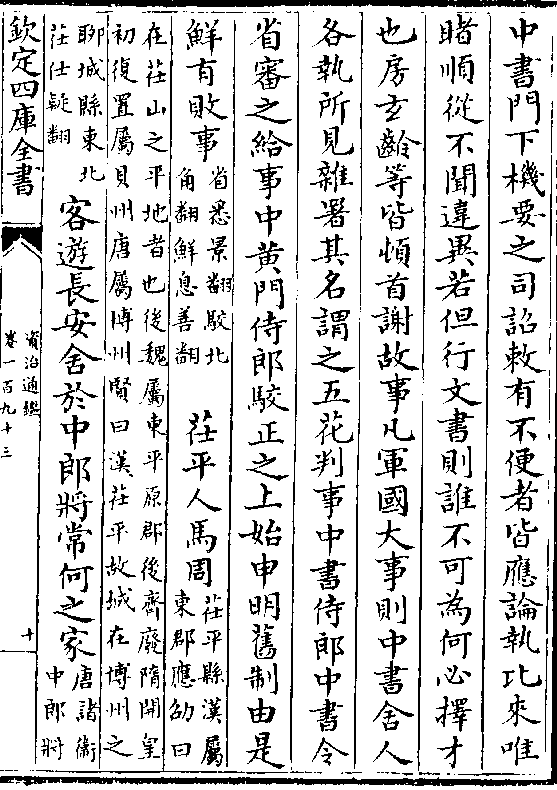 中書門下機要之司詔敕有不便者皆應論執比來唯
睹順從不聞違異若但行文書則誰不可為何必擇才
也房玄齡等皆頓首謝故事凡軍國大事則中書舍人
各執所見雜署其名謂之五花判事中書侍郎中書令
省審之給事中黄門侍郎駮正之上始申明舊制由是
鮮有敗事
省悉景翻駮北
角翻鮮息善翻
茌平人馬周
茌平縣漢屬
東郡應劭曰
在茌山之平地者也後魏屬東平原郡後齊廢隋開皇
初復置屬貝州唐屬博州賢曰漢茌平故城在博州之
聊城縣東北
茌仕疑翻
客遊長安舍於中郎將常何之家
唐諸衛
中郎將
欽定四庫全書
資治通鑑
卷一百九十三
十